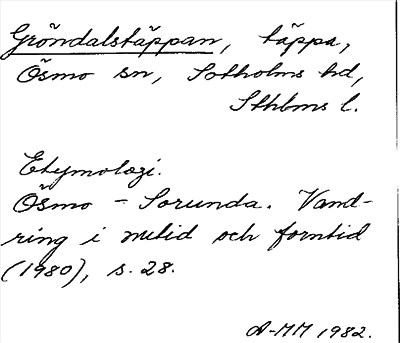 Gröndalstäppan, täppa,
Ösmo sn, Sotholms hd,
Sthlms l.
Etymologi.
Ösmo - Sorunda. Vand-
ring i nutid och forntid
(1980), s. 28.
A-MM 1982.